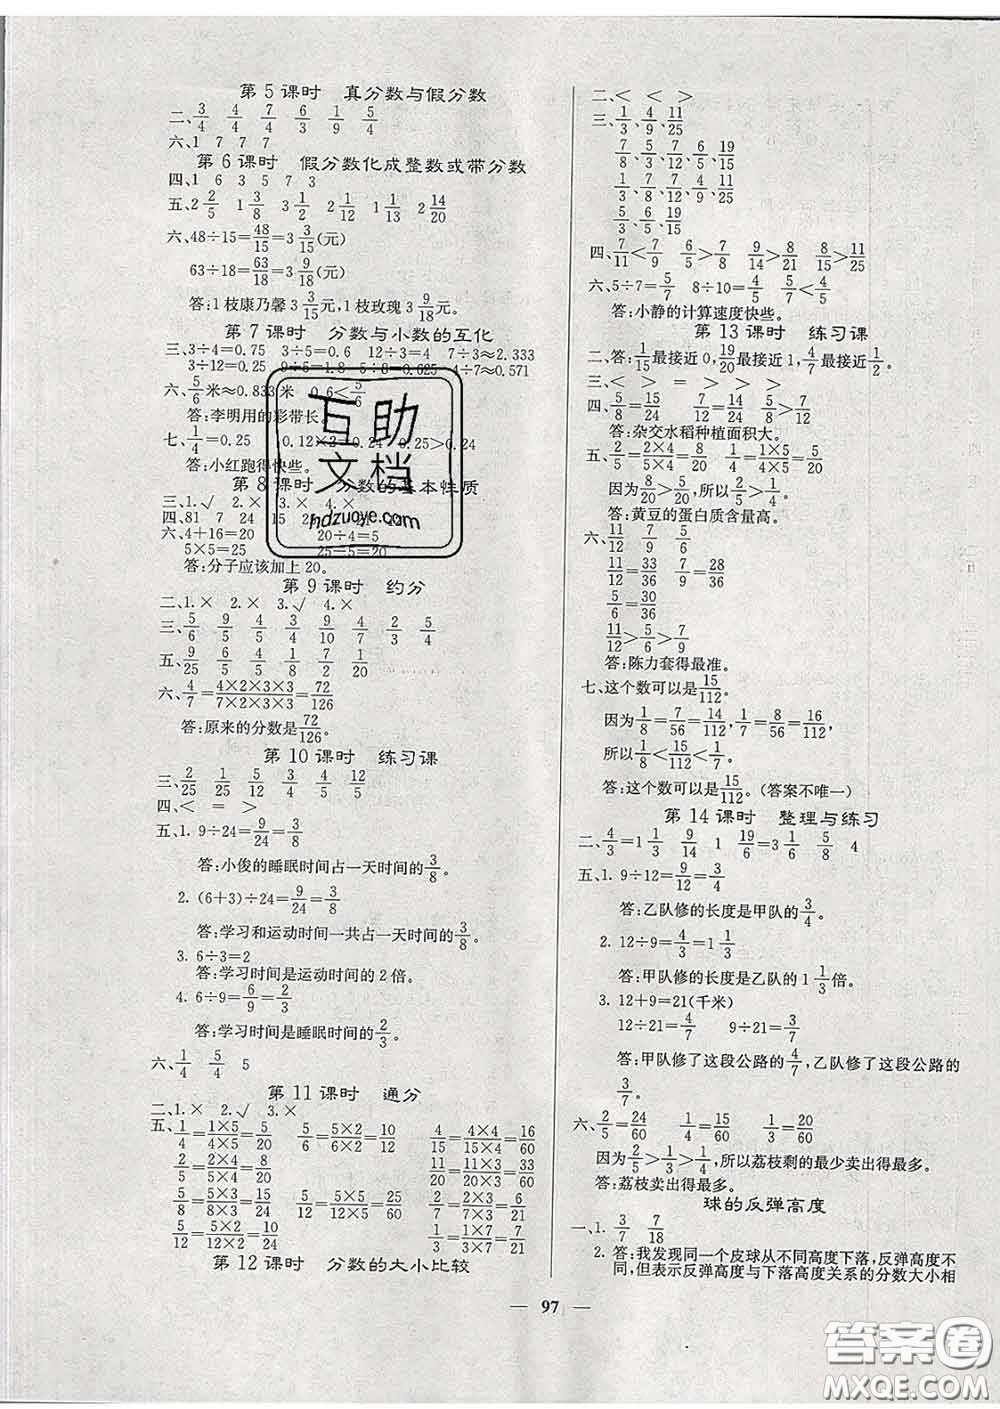 第5课时　真分数与假分数
二、3/4　4/4　7/4　6/3　1/9　5/4
六、1　7　7　7
第6课时　假分数化成整数或带分数
四、1　6　3　5　7　3
五、2 2/5　1 3/8　3 1/2　2 1/12　1 1/13　2 14/20
六、48÷15=48/15=3 3/15(元)
63÷18=63/18=3 9/18(元)
答:1枝康乃馨3 3/15元,1枝玫瑰3 9/18元。
第7课时　分数与小数的互化
三、3÷4=0.75　3÷5=0.6　12÷3=4　7÷3≈2.333
3÷12=0.25　9÷5=1.8　5÷8=0.625　4÷7≈0.571
六、5/6米≈0.833米　0.6<5/6
答:李明用的彩带长。
七、1/4=0.25　0.12×2=0.24　0.25>0.24
答:小红跑得快些。
第8课时　分数的基本性质
三、1.√　2.×　3.×
四、81　7　24　15　21　20
六、4+16=20　20÷4=5
5×5=25　25-5=20
答:分子应该加上20。
第9课时　约分
二、1.×　2.×　3.√　4.×
三、5/6　9/5　5/4　3/4　9/10　4/7　2/3　5/4
五、9/25　6/5　4/5　1/8　7/2　1/20
六、4/7=4×2×3×3/7×2×3×3=72/126
答:原来的分数是72/126。
第10课时　练习课
三、2/25　1/25　5/12　3/4　4/5　12/5
四、<　=　>
五、1. 9÷24=9/24=3/8
答:小俊的睡眠时间占一天时间的3/8。
2. (6+3)÷24=9/24=3/8
答:学习和运动时间一共占一天时间的3/8。
3. 6÷3=2
答:学习时间是运动时间的2倍。
4. 6÷9=6/9=2/3
答:学习时间是睡眠时间的2/3。
六、1/4　5/4　5
第11课时　通分
二、1.×　2.√　3.×
五、1/4=1×5/4×5=5/20　5/6=5×2/6×2=10/12　4/15=4×4/15×4=16/60
2/5=2×4/5×4=8/20　11/20=11×3/20×3=33/60
5/8=5×3/8×3=15/24　5/12=5×5/12×5=25/60　2/7=2×3/7×3=6/21
5/12=5×2/12×2=10/24　1/3=1×7/3×7=7/21
第12课时　分数的大小比较
二、<　<　>
三、1/3、4/9、11/25
7/8、5/3、6/5、19/15
1/3、7/8、6/5、19/15
5/3、6/5、19/15
四、7/11<7/9　6/7>5/8　9/14>8/21　8/15>11/25
六、5÷7=5/7　8÷10=4/5　5/7<4/5
答:小静的计算速度快些。
第13课时　练习课
二、答:1/15最接近0,19/20最接近1,4/7最接近1/2。
三、<　>　=　>　>　<
四、5/8=15/24　7/12=14/24　5/8>7/12
答:杂交水稻种植面积大。
五、2/5=2×4/5×4=8/20　1/4=1×5/4×5=5/20
因为8/20>5/20,所以2/5>1/4。
答:黄豆的蛋白质含量高。
六、11/12　7/9　5/6
11/12=33/36　7/9=28/36
5/6=30/36
11/12>5/6>7/9
答:陈力套得最准。
七、这个数可以是15/112。
因为1/8=7/56=14/112,1/7=8/56=16/112,
所以1/8<15/112<1/7。
答:这个数可以是15/112。(答案不唯一)
第14课时　整理与练习
二、4/3=1 1/3　9/14　1　19/6=3 1/6　5/8　4
五、1. 9÷12=9/12=3/4
答:乙队修的长度是甲队的3/4。
2. 12÷9=4/3=1 1/3
答:甲队修的长度是乙队的1 1/3倍。
3. 12+9=21(千米)
12÷21=4/7　9÷21=3/7
答:甲队修了这段公路的4/7,乙队修了这段公路的
3/7。
六、2/5=24/60　1/4=15/60　1/3=20/60
因为2/5>1/3>1/4,所以荔枝剩的最少卖出得最多。
答:荔枝卖出得最多。
球的反弹高度
一、1. 3/7　7/18
2. 答:我发现同一个皮球从不同高度下落,反弹高度不
同,但表示反弹高度与下落高度关系的分数大小相
— 97 —
互助
文档
hdzuoye.com
答案圈
MXQE.COM